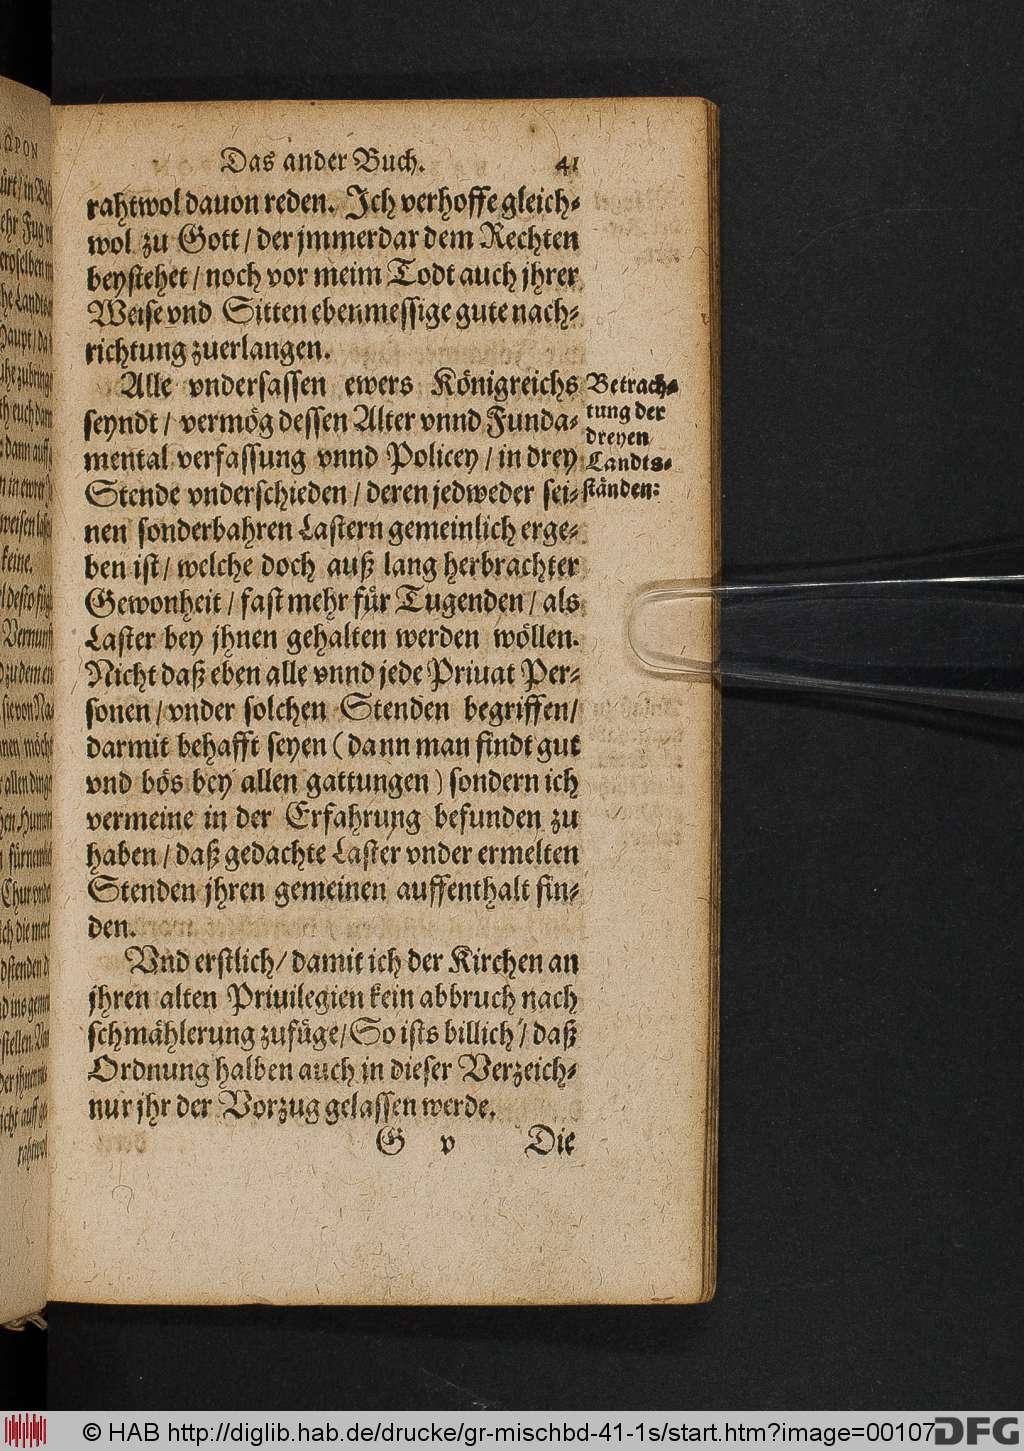 Das ander Buch. 41
rahtwol dauon reden. Ich verhoffe gleich-
wol zu Gott / der jmmerdar dem Rechten
beystehet / noch vor meim Todt auch jhrer
Weise vnd Sitten ebenmessige gute nach-
richtung zuerlangen.
Alle vndersassen ewers Königreichs
seyndt / vermög dessen Alter vnnd Funda-
mental verfassung vnnd Policey / in drey
Stende vnderschieden / deren jedweder sei-
nen sonderbahren Lastern gemeinlich erge-
ben ist / welche doch auß lang herbrachter
Gewonheit / fast mehr für Tugenden / als
Laster bey jhnen gehalten werden wöllen.
Nicht daß eben alle vnnd jede Priuat Per-
sonen / vnder solchen Stenden begriffen /
darmit behafft seyen (dann man findt gut
vnd bös bey allen gattungen) sondern ich
vermeine in der Erfahrung befunden zu
haben / daß gedachte Laster vnder ermelten
Stenden jhren gemeinen auffenthalt fin-
den.
Vnd erstlich / damit ich der Kirchen an
jhren alten Priuilegien kein abbruch nach
schmählerung zufüge / So ists billich / daß
Ordnung halben auch in dieser Verzeich-
nur jhr der Vorzug gelassen werde.
G v Die
Betrach-
tung der
dreyen
Landts-
ständen:
© HAB http://diglib.hab.de/drucke/gr-mischbd-41-1s/start.htm?image=00107
DFG